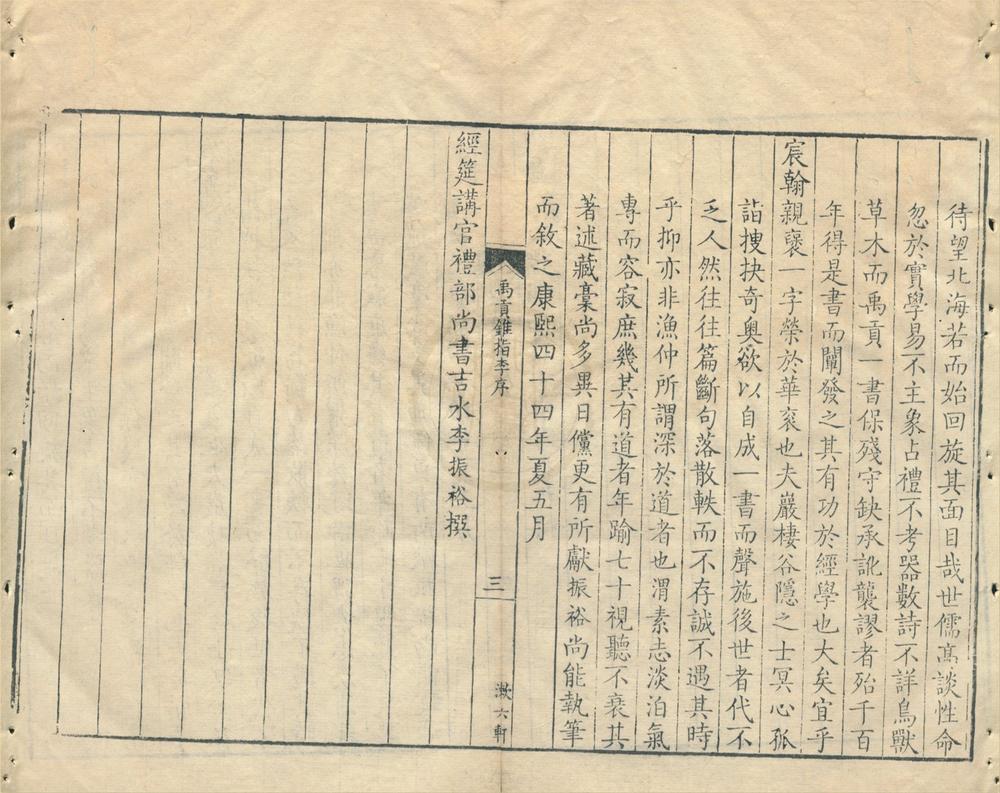 待望北海若而始回旋其面目哉世儒高談性命
忽於實學易不主象占禮不考器數詩不詳鳥獸
草木而禹貢一書保殘守缺承訛襲謬者殆千百
年得是書而闡發之其有功於經學也大矣宜乎
宸翰親襃一字榮於華衮也夫巖棲谷隱之士冥心孤
詣搜抉奇奥欲以自成一書而聲施後世者代不
乏人然往往篇斷句落散軼而不存誠不遇其時
乎抑亦非漁仲所謂深於道者也渭素志淡泊氣
專而容寂庶幾其有道者年踰七十視聽不衰其
著述藏稾尚多異日儻更有所獻振裕尚能執筆
而敘之康熙四十四年夏五月
禹貢錐指李序
三
漱六軒
經筵講官禮部尚書吉水李振裕撰